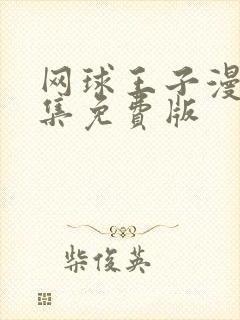 网球王子漫
集免费版
柴俊英